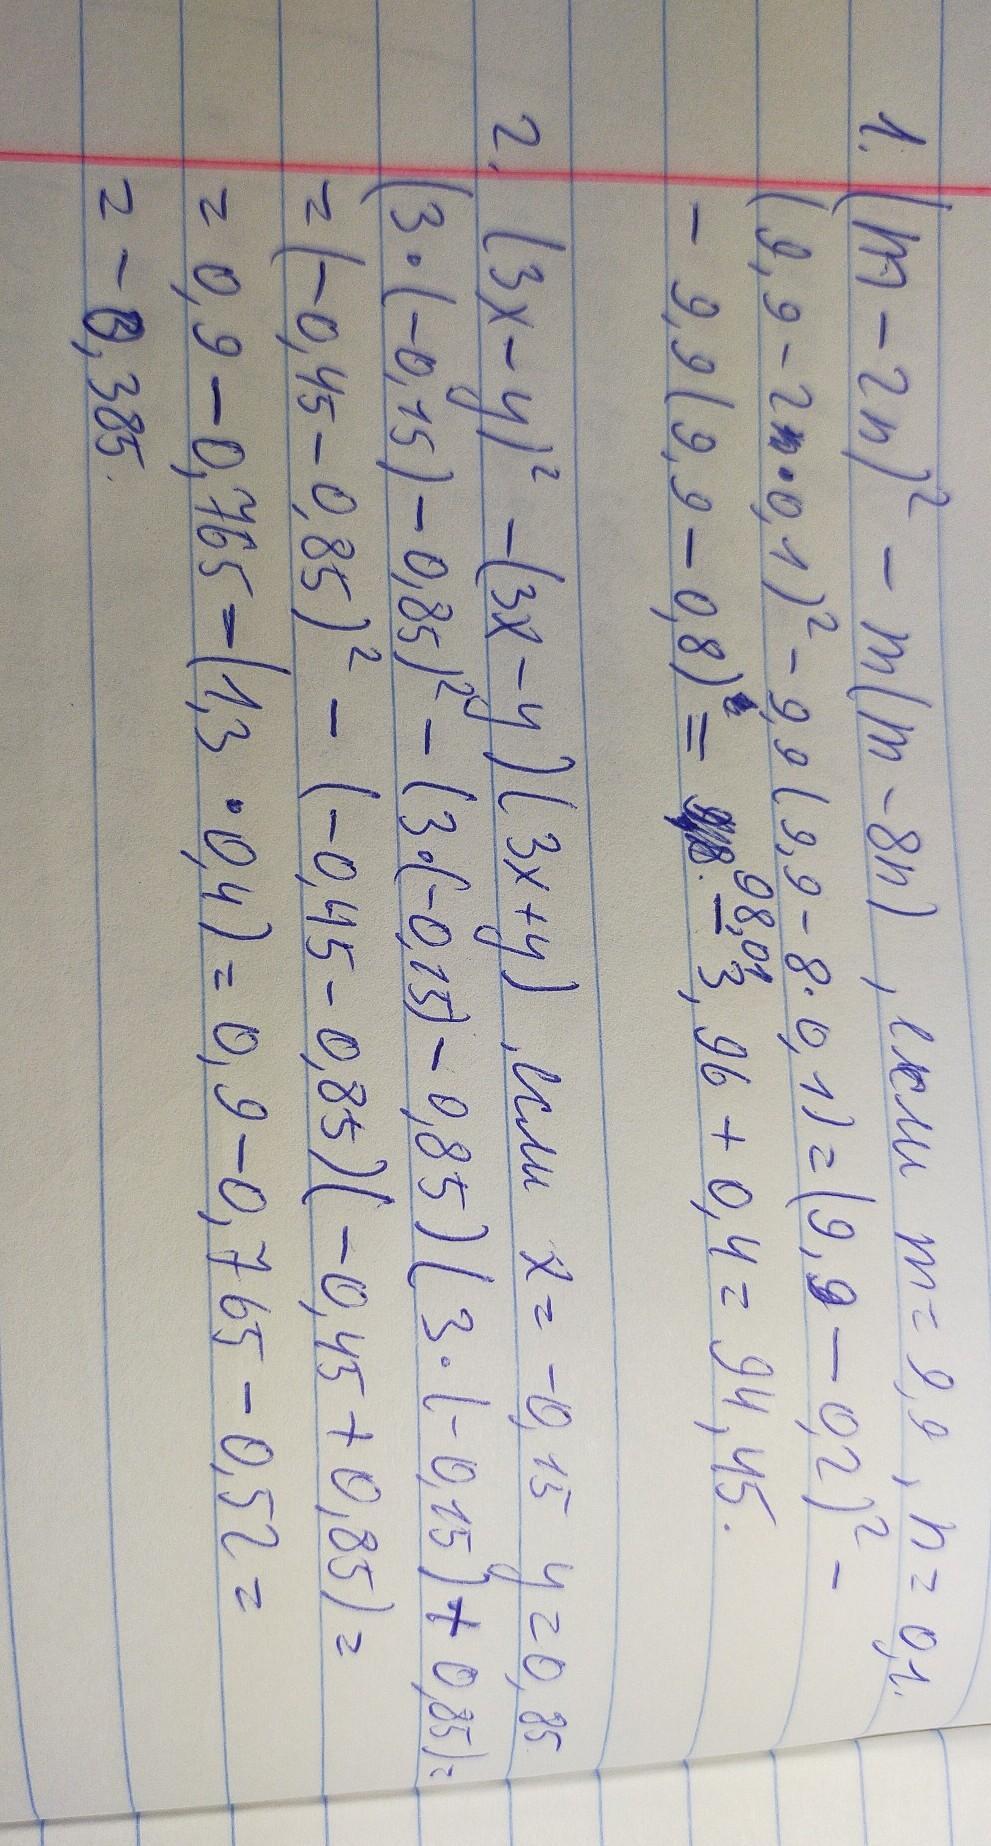 1. (m - 2n)² - m(m - 8n), если m = 9,9, n = 0,1.
(9,9 - 2 · 0,1)² - 9,9(9,9 - 8 · 0,1) = (9,9 - 0,2)² -
- 9,9(9,9 - 0,8) = 98,01 - 3,96 + 0,4 = 94,45.
2. (3x - y)² - (3x - y)(3x + y), если x = -0,15 y = 0,85
(3 · (-0,15) - 0,85)² - (3 · (-0,15) - 0,85)(3 · (-0,15) + 0,85) =
= (-0,45 - 0,85)² - (-0,45 - 0,85)(-0,45 + 0,85) =
= 0,9 - 0,765 - (1,3 · 0,4) = 0,9 - 0,765 - 0,52 =
= - 0,385.